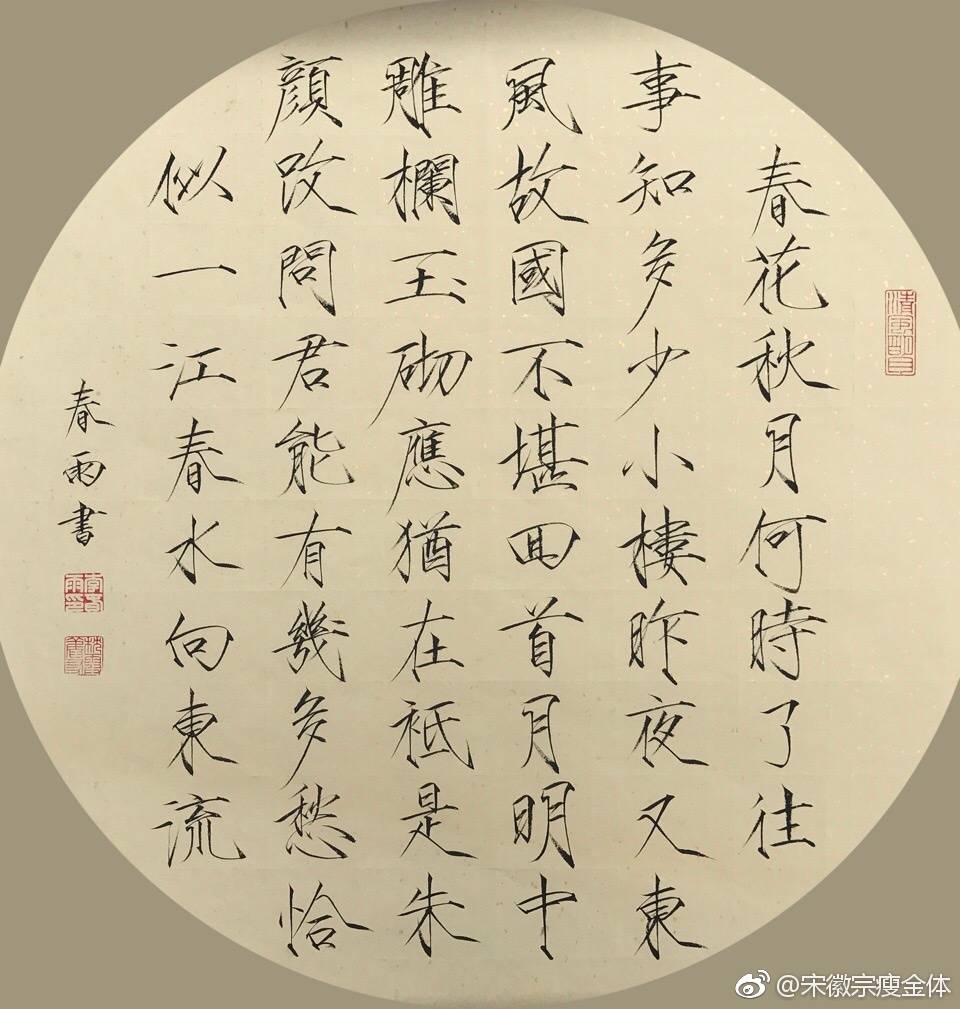 春花秋月何時了往
事知多少小樓昨夜又東
風故國不堪回首月明中
雕欄玉砌應猶在祗是朱
顏改問君能有幾多愁恰
似一江春水向東流
春雨書
@宋徽宗瘦金体